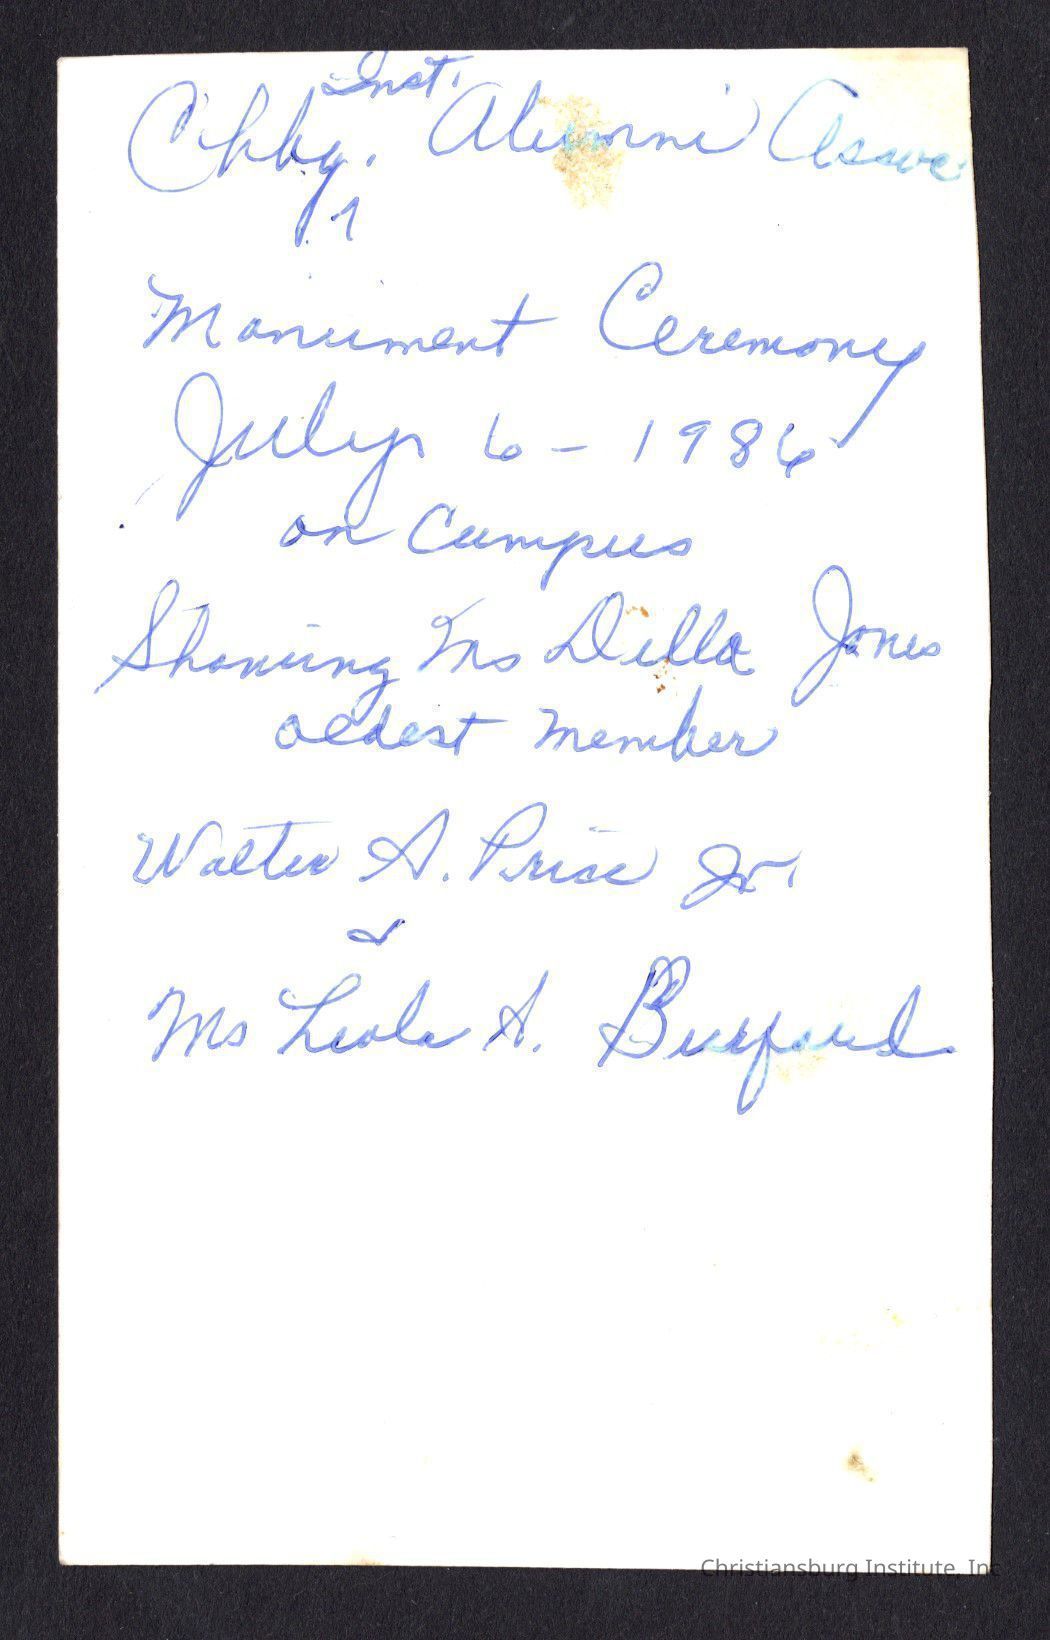 Chbg. Inst. Alumni Assoc
Monument Ceremony
July 6 - 1986
on Campus
Showing Ms Della Jones
oldest member
Walter A. Price Jr.
&
Ms Leola A. Burford
Christiansburg Institute, Inc